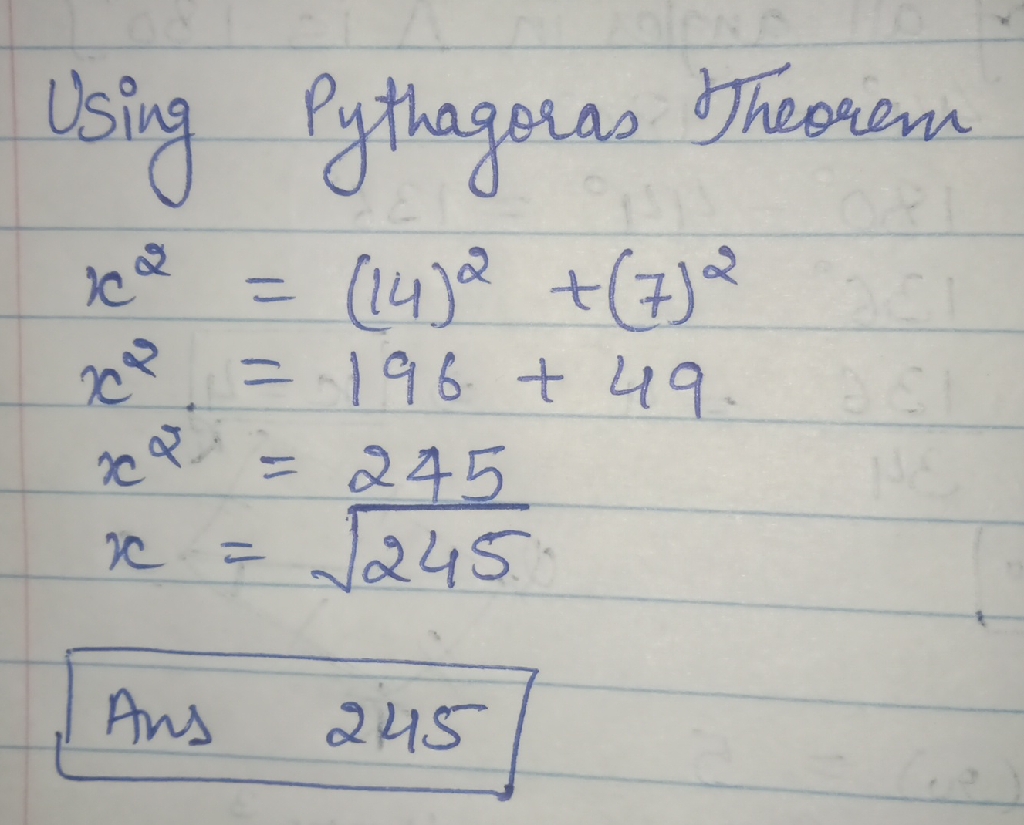 Using Pythagoras Theorem
x² = (14)² + (7)²
x² = 196 + 49
x² = 245
x = √245
Ans 245